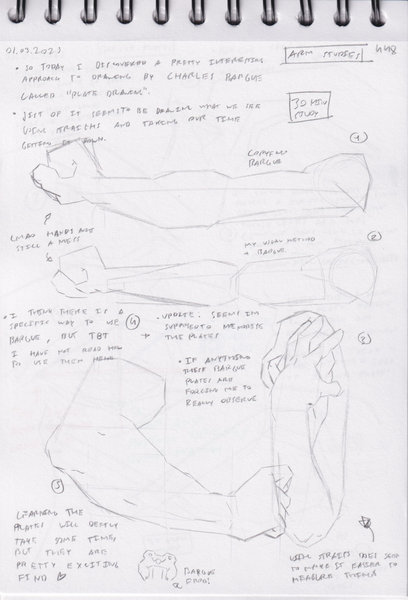 01.03.2023
ARM STUDIES
• SO TODAY I DISCOVERED A PRETTY INTERESTING
APPROACH TO DRAWING BY CHARLES BARGUE
CALLED "PLATE DRAWING".
• GIST OF IT SEEMS TO BE DRAWING WHAT WE SEE
USING STRAIGHTS AND TAKING OUR TIME
GETTING IT DOWN.
30 MIN
STUDY
1
COPYING
BARGUE
LMAO HANDS ARE
STILL A MESS
2
MY USUAL METHOD
+ BARGUE
• I THINK THERE IS A
SPECIFIC WAY TO USE
BARGUE, BUT TBT
I HAVE NOT READ HOW
TO USE THEM HERE
4
• UPDATE: SEEMS IM
SUPPOSED TO MEMORISE
THE PLATES
• IF ANYTHING
THESE BARGUE
PLATES ARE
FORCING ME TO
REALLY OBSERVE
3
LEARNING THE
PLATES WILL
TAKE SOME TIME,
BUT THEY ARE
PRETTY EXCITING
FIND
BARGUE
USING STRAITS DOES SEEM
TO MAKE IT EASIER TO
MEASURE THINGS